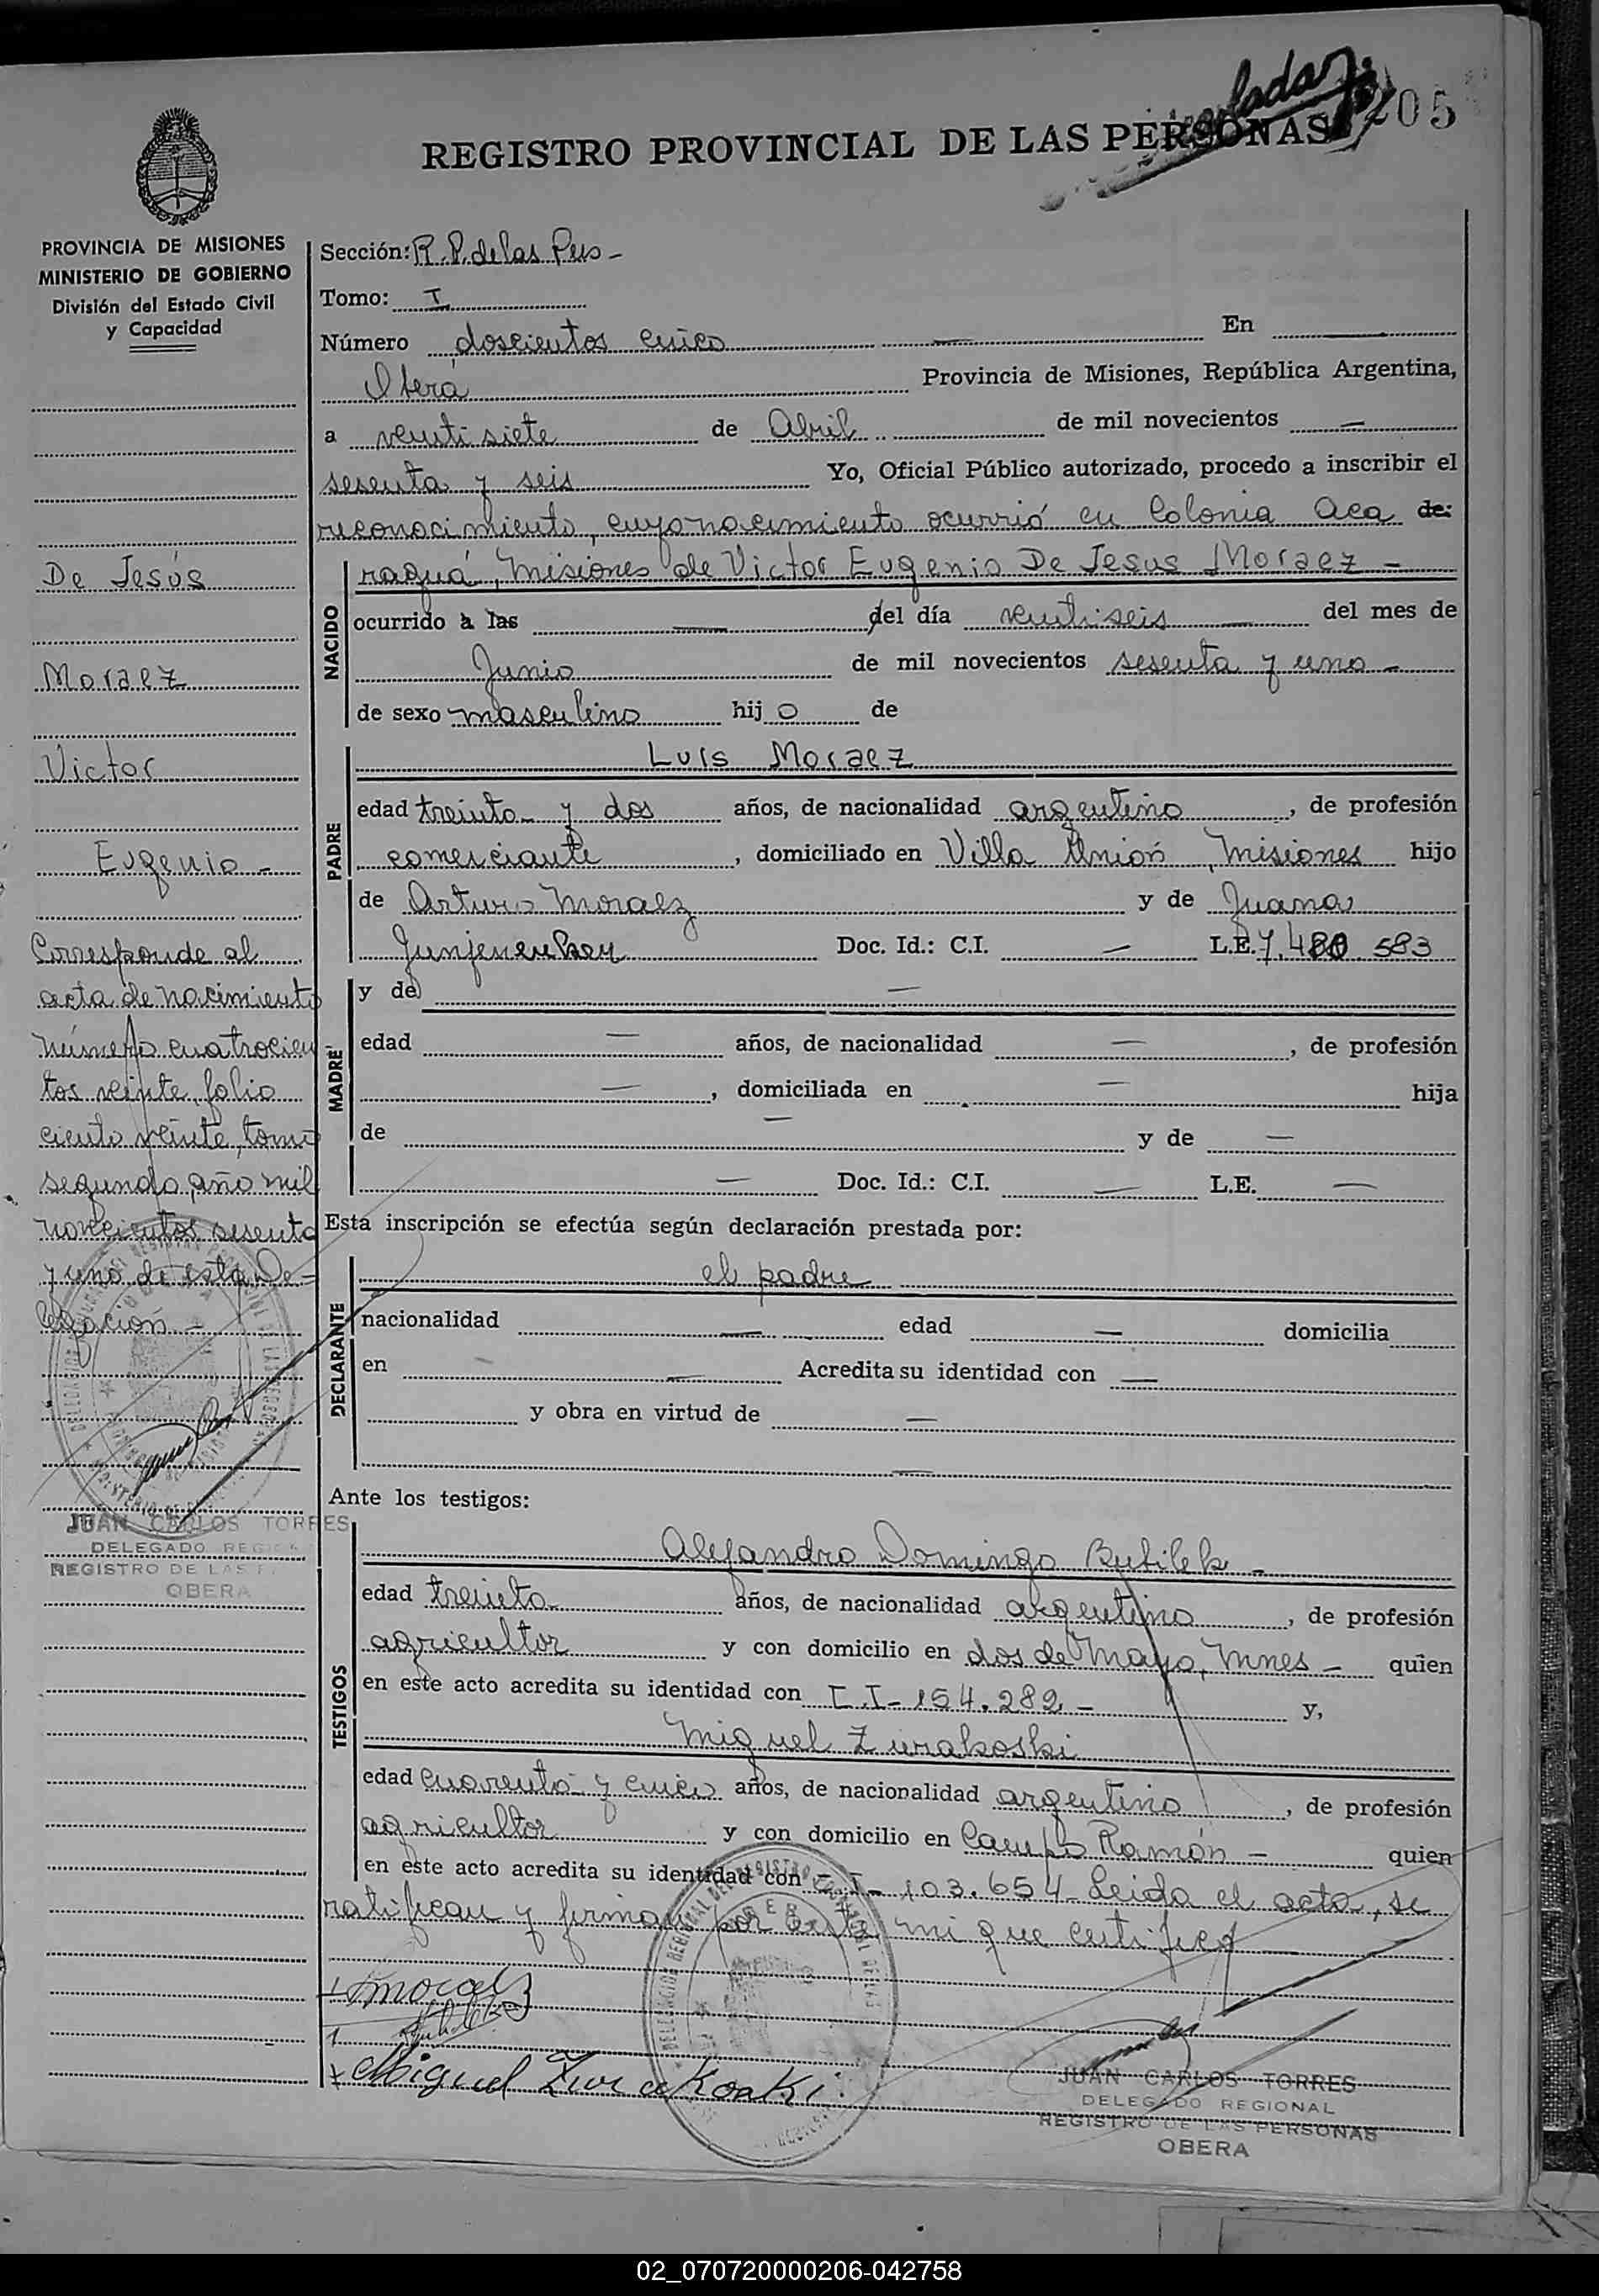 205
REGISTRO PROVINCIAL DE LAS PERSONAS
PROVINCIA DE MISIONES
MINISTERIO DE GOBIERNO
División del Estado Civil
y Capacidad
De Jesús
Moraez
Victor
Eugenio -
Corresponde al
acta de nacimiento
número cuatrocien
tos veinte, folio
ciento veinte, tomo
segundo, año mil
novecientos sesenta
y uno de esta De-
legación -
JUAN CARLOS TORRES
DELEGADO REGIONAL
REGISTRO DE LAS
OBERA
Sección: R. P. de las Pers -
Tomo: I
Número doscientos cinco — En —
Oberá Provincia de Misiones, República Argentina,
a veinti siete de Abril de mil novecientos —
sesenta y seis Yo, Oficial Público autorizado, procedo a inscribir el
reconocimiento, cuyo nacimiento ocurrió en Colonia Aca de:
NACIDO
raguá, Misiones de Victor Eugenio De Jesus Moraez -
ocurrido a las — del día veintiseis — del mes de
Junio de mil novecientos sesenta y uno -
de sexo masculino hijo de
PADRE
Luis Moraez
edad treinta y dos años, de nacionalidad argentino, de profesión
comerciante, domiciliado en Villa Unión, Misiones hijo
de Arturo Moraez y de Juana
Doc. Id.: C.I. — L.E. 7.480.583
MADRE
y de —
edad — años, de nacionalidad —, de profesión
—, domiciliada en — hija
de — y de —
— Doc. Id.: C.I. — L.E. —
Esta inscripción se efectúa según declaración prestada por:
DECLARANTE
el padre
nacionalidad — edad — domicilia
en — Acredita su identidad con —
y obra en virtud de —
—
Ante los testigos:
TESTIGOS
Alejandro Domingo Rubilek -
edad treinta años, de nacionalidad argentino, de profesión
agricultor y con domicilio en dos de Mayo, Mnes - quien
en este acto acredita su identidad con C.I - 154.282 - y,
Miguel Zurakoski
edad cuarenta y cinco años, de nacionalidad argentino, de profesión
agricultor y con domicilio en Campo Ramón - quien
en este acto acredita su identidad con C.I - 103.654 - Leida el acta, se
ratifican y firman por ante mi que certifico —
Moraez
Miguel Zurakoski
JUAN CARLOS TORRES
DELEGADO REGIONAL
REGISTRO DE LAS PERSONAS
OBERA
02_070720000206-042758